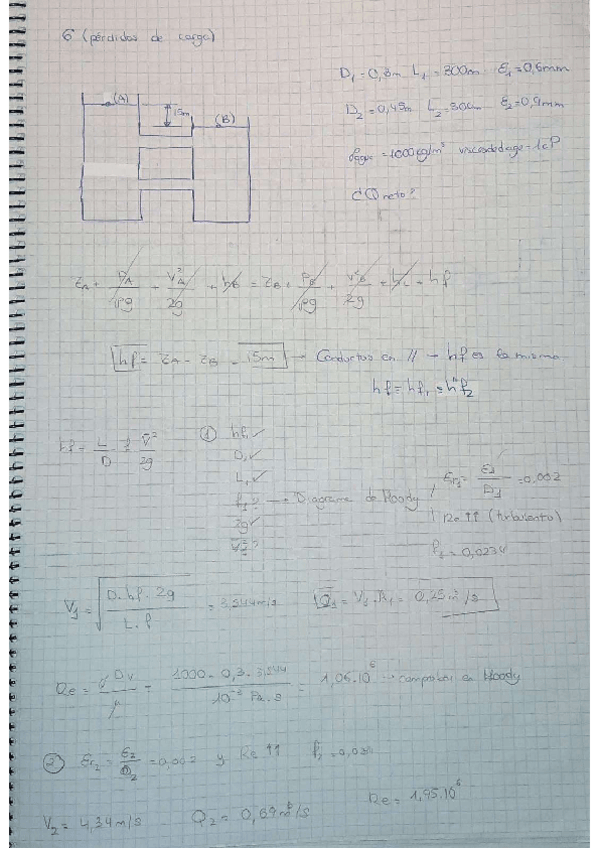 6 (pérdidas de carga)
D₁ = 0,3m L₁ = 300m ε₁ = 0,6mm
(A)
15m
(B)
D₂ = 0,45m L₂ = 300m ε₂ = 0,9mm
ρagua = 1000kg/m³ viscosidad agua = 1cP
¿Q neto?
z_A + P_A/ρg + V_A²/2g + h_B = z_B + P_B/ρg + V_B²/2g + h_L + hf
hf = z_A - z_B = 15m → Conductos en // → hf es la misma
hf = hf₁ = hf₂
hf = L/D f V²/2g
① hf₁ ✓
D₁ ✓
L₁ ✓
f₁? → Diagrama de Moody
2g ✓
V₁²?
εr₁ = ε₁/D₁ = 0,002
Re ↑↑ (turbulento)
f₁ = 0,0234
V₁ = √(D·hf·2g / L·f) = 3,544m/s Q₁ = V₁·A₁ = 0,25m³/s
Re = ρDv/μ = 1000·0,3·3,544 / 10⁻³ Pa·s = 1,06·10⁶ → comprobar en Moody
② εr₂ = ε₂/D₂ = 0,002 y Re ↑↑
V₂ = 4,34m/s Q₂ = 0,69m³/s Re = 1,95·10⁶